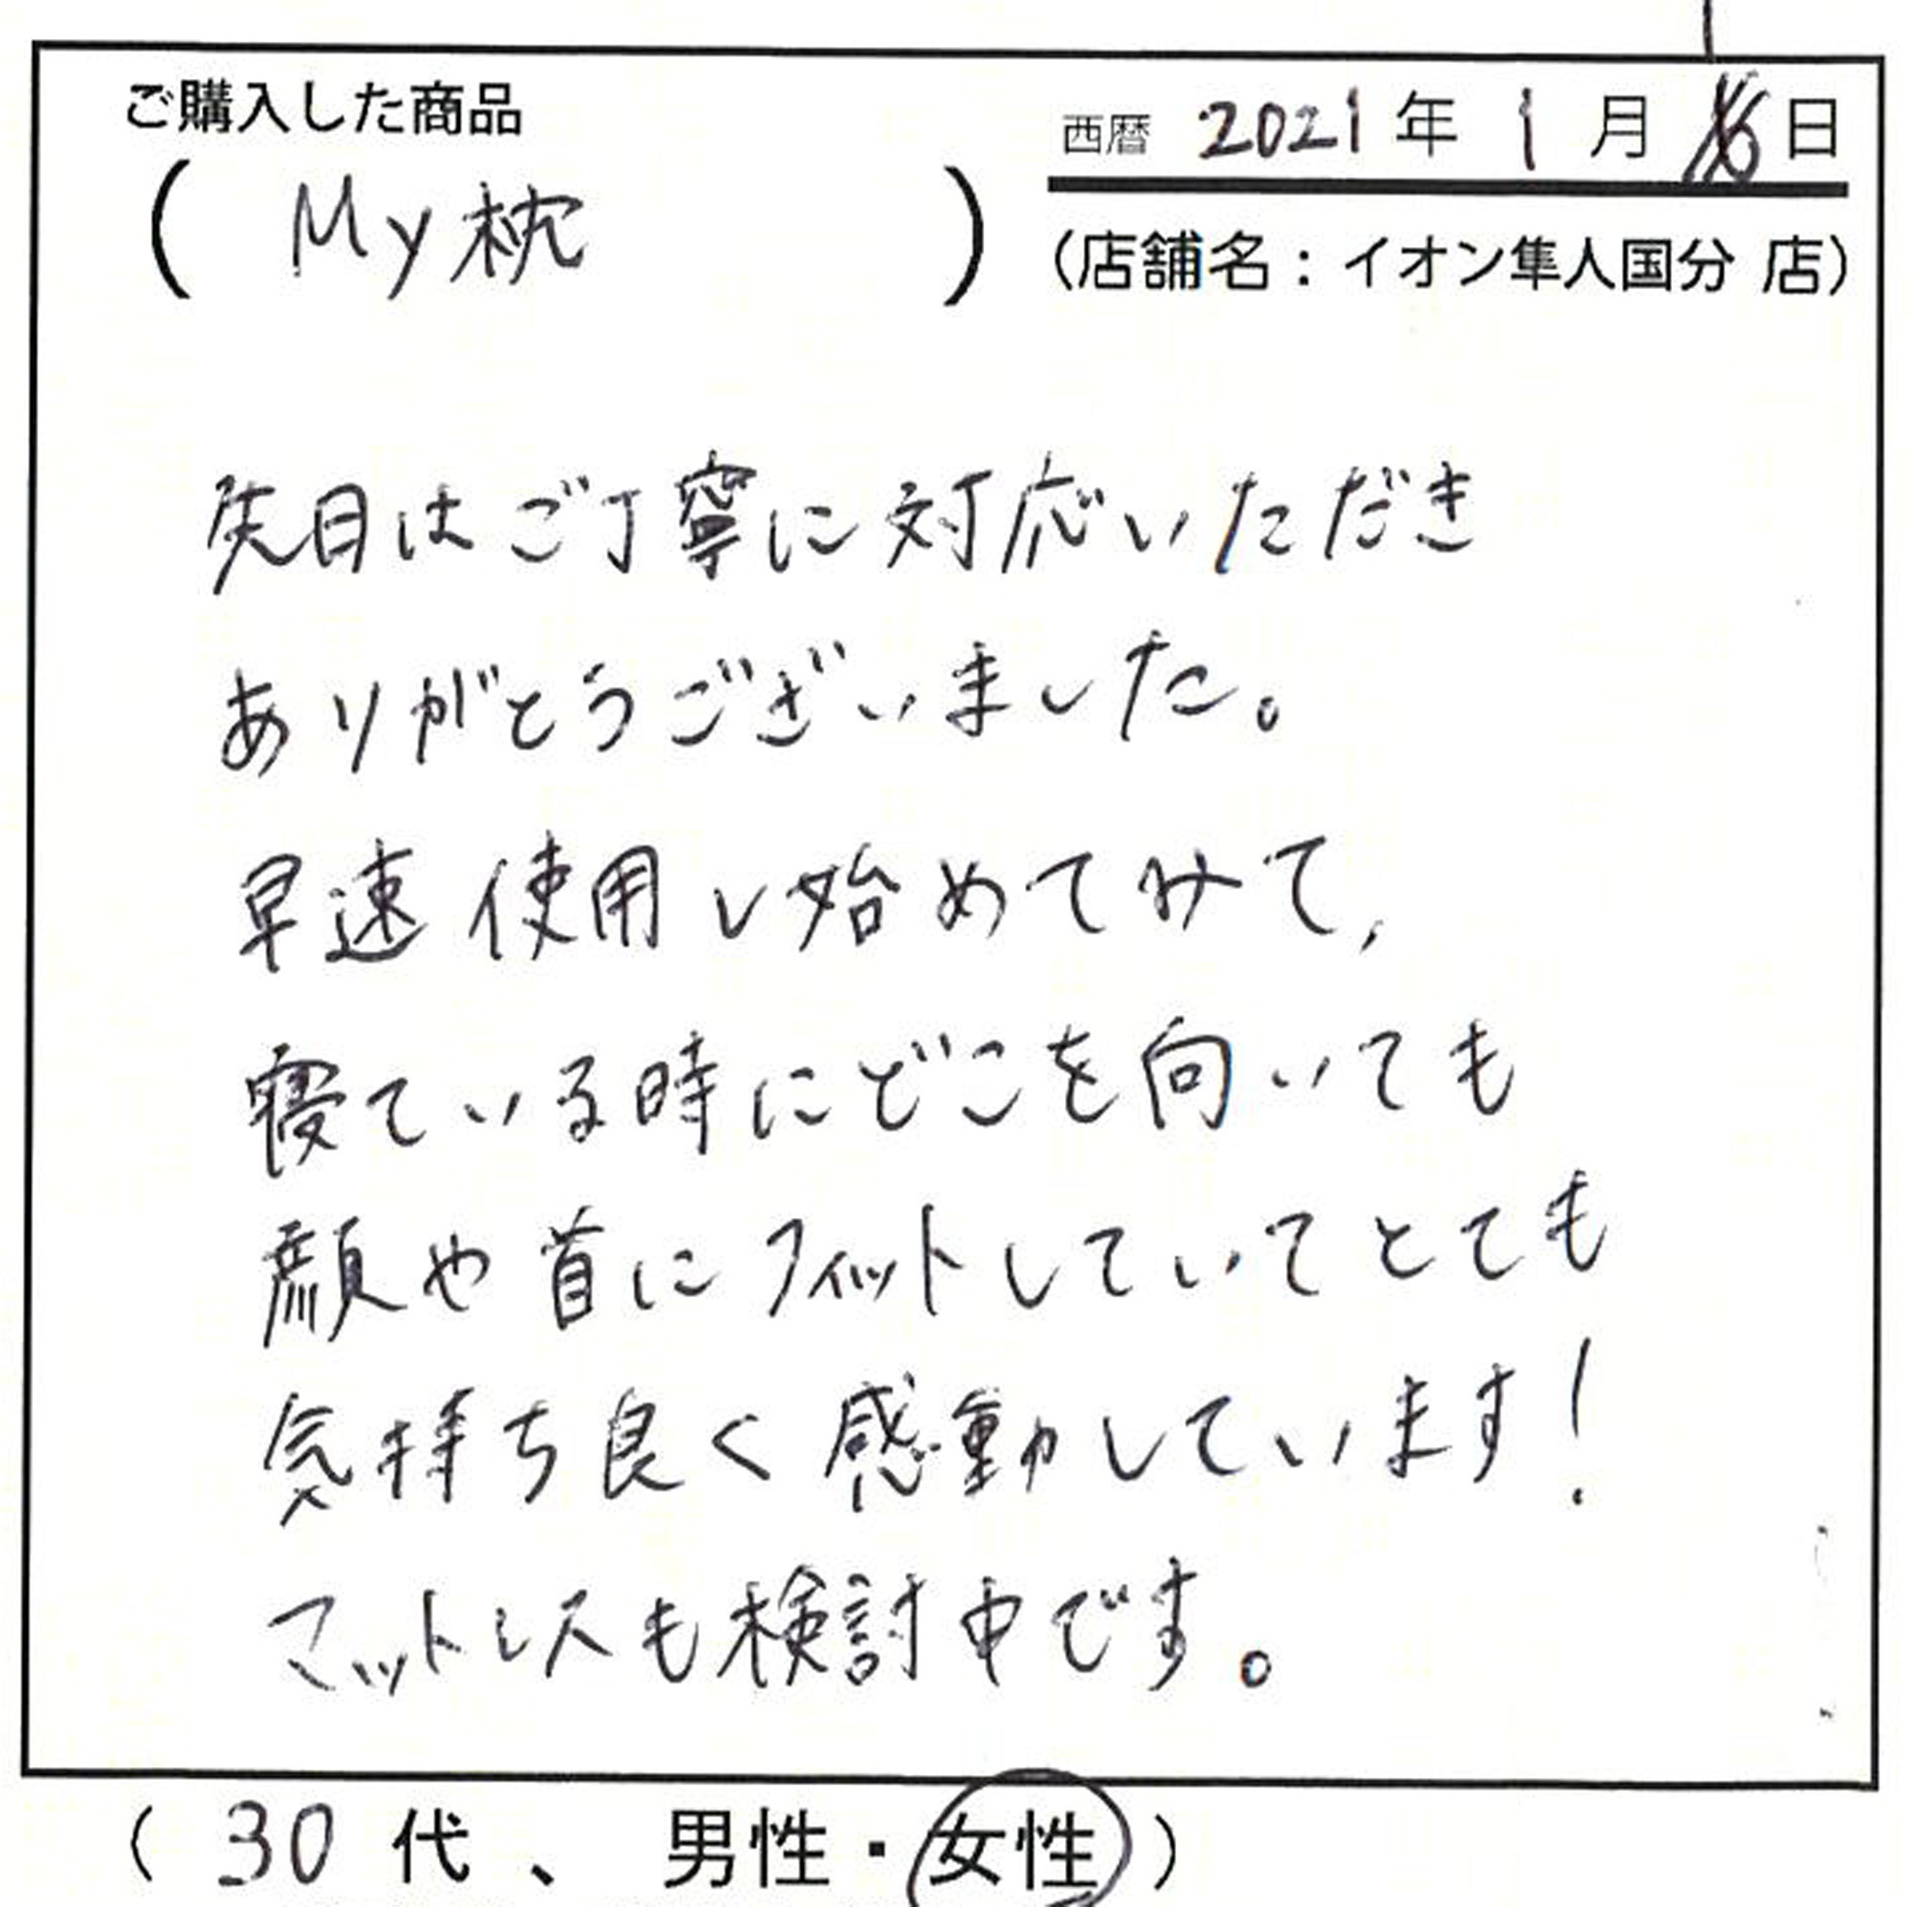 ご購入した商品
( My枕 )
西暦 2021 年 1 月 日
(店舗名：イオン隼人国分 店)
先日はご丁寧に対応いただき
ありがとうございました。
早速使用し始めてみて、
寝ている時にどこを向いても
顔や首にフィットしていてとても
気持ち良く感動しています!
マットレスも検討中です。
( 30 代 、 男性・女性 )